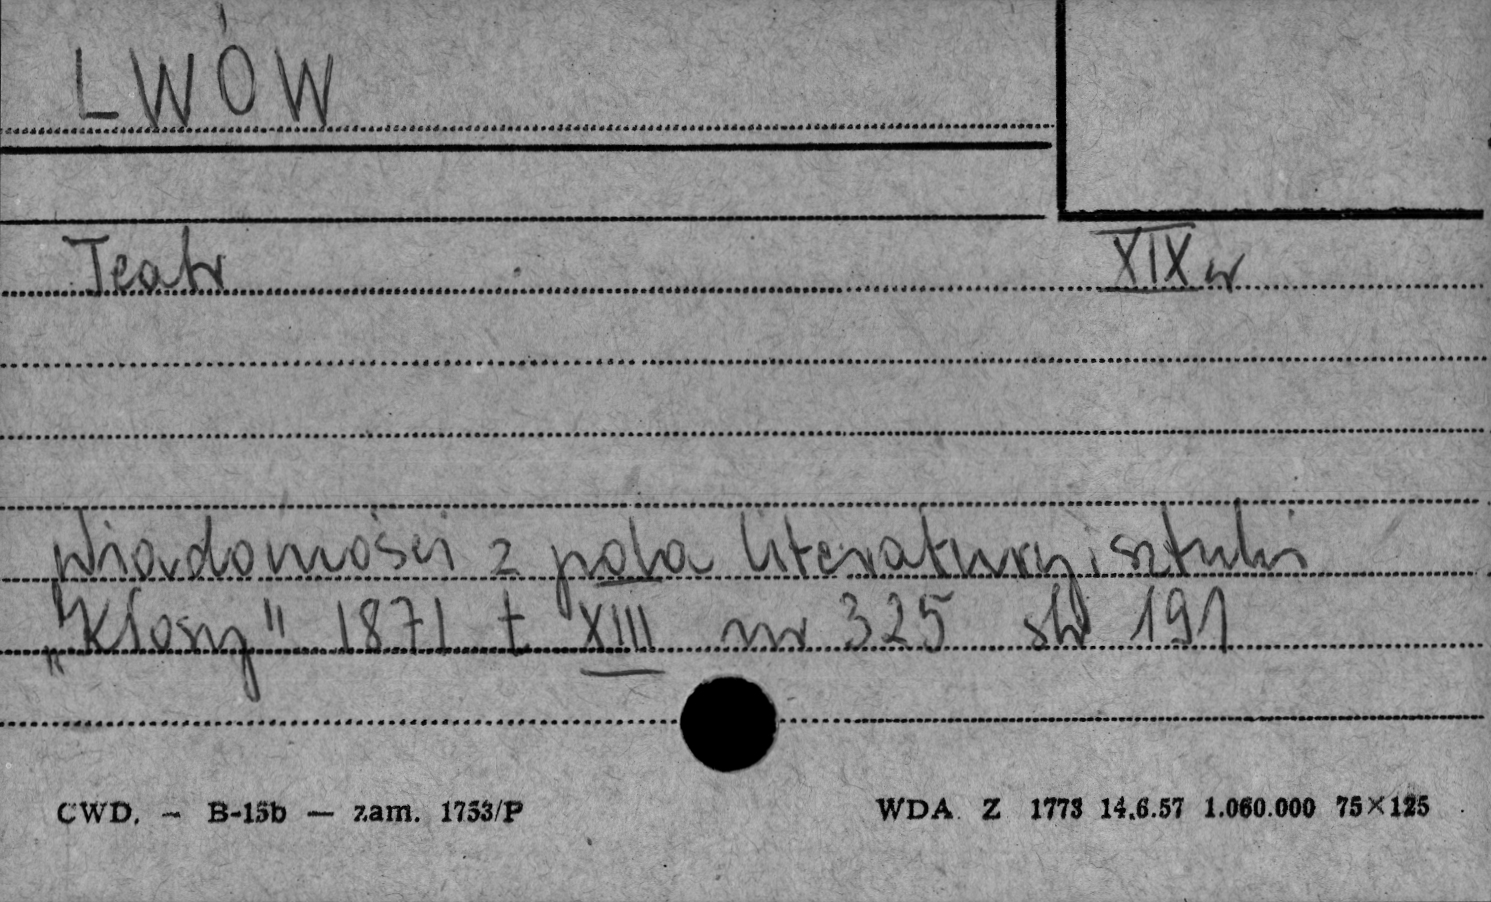 LWÓW
Teatr XIX w
Wiadomości z pola literatury i sztuki
„Kłosy" 1871 t XIII nr 325 str 191
CWD. — B-15b — zam. 1753/P WDA Z 1773 14.6.57 1.060.000 75×125